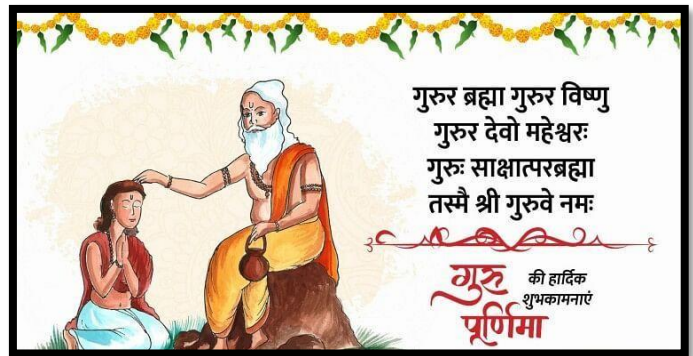 गुरुर ब्रह्मा गुरुर विष्णु
गुरुर देवो महेश्वरः
गुरुः साक्षात्परब्रह्मा
तस्मै श्री गुरुवे नमः
गुरु की हार्दिक
शुभकामनाएं
पूर्णिमा